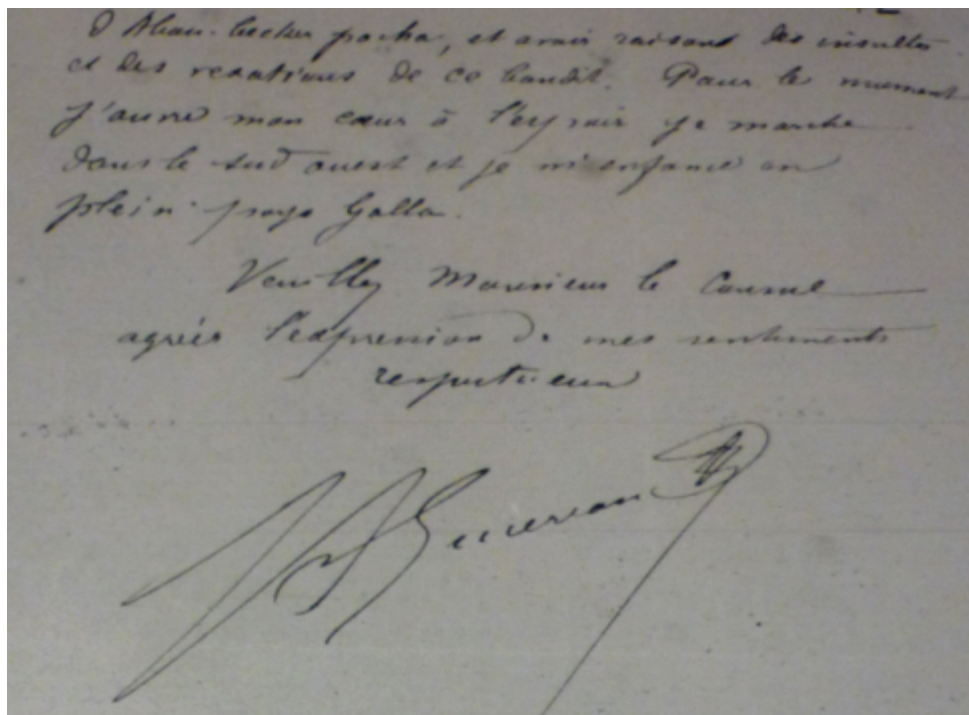 d'Abou-becker pacha, et avoir raison des insultes
et des vexations de ce bandit. Pour le moment
j'ouvre mon cœur à l'espoir je marche
dans le sud ouest et je m'enfonce en
plein pays Galla.
Veuillez Monsieur le Consul
agréer l'expression de mes sentiments
respectueux